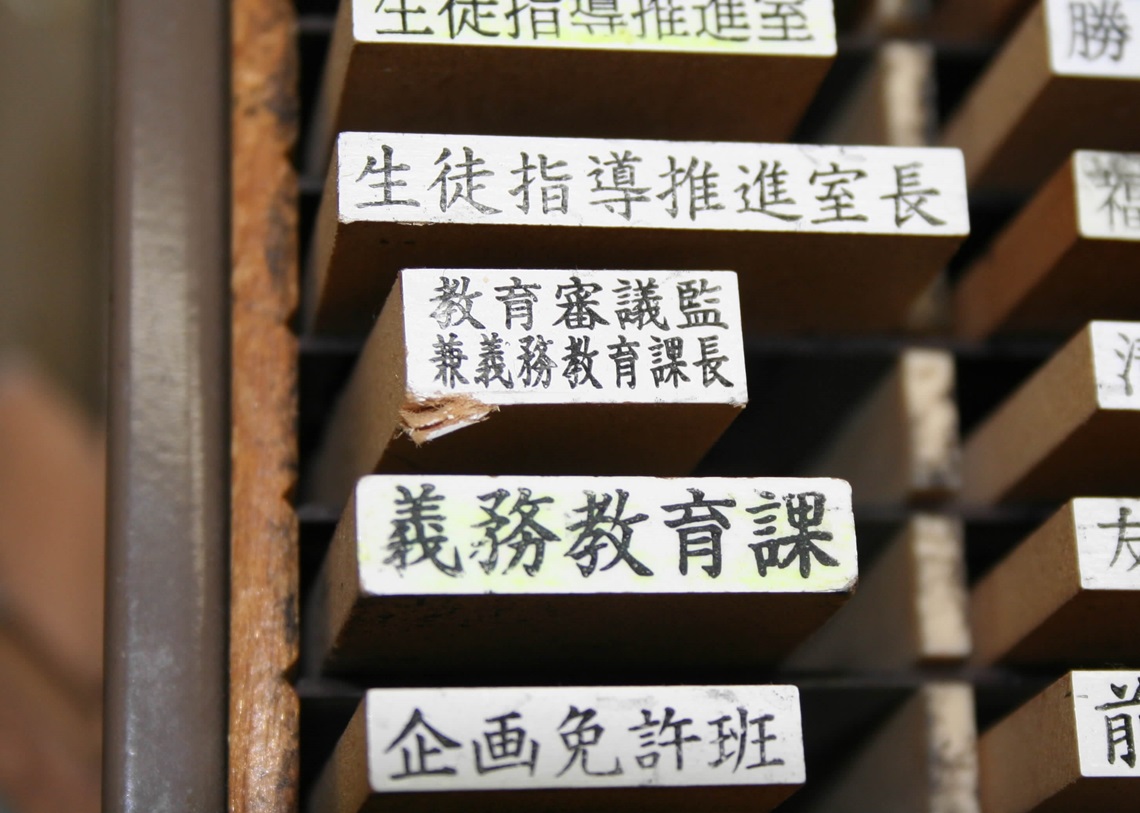 生徒指導推進室
生徒指導推進室長
教育審議監
兼義務教育課長
義務教育課
企画免許班
勝
福
友
前